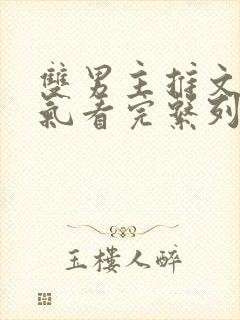 雙男主推文
氣看完系列
玉樓人醉